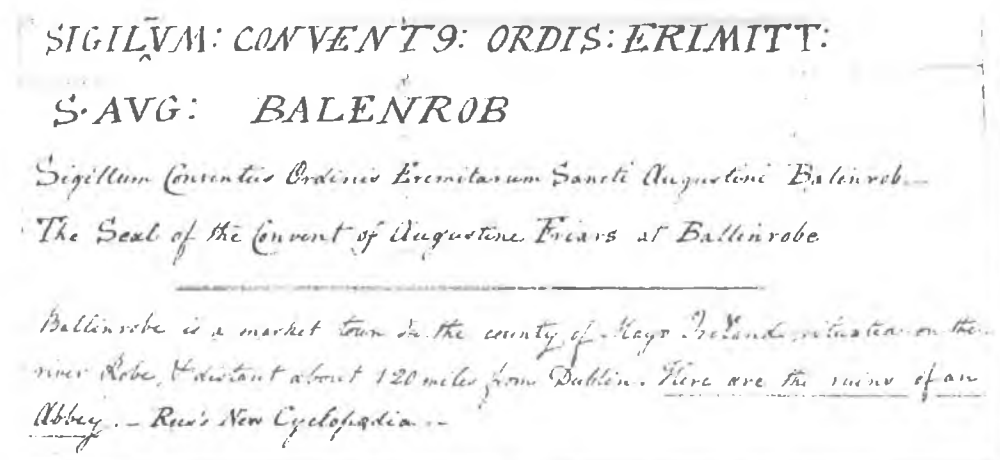 SIGILṼM: CONVENT9: ORDIS: ERIMITT:
S. AVG: BALENROB
Sigillum Conventûs Ordinis Eremitarum Sancti Augustini Balenrob.—
The Seal of the Convent of Augustine Friars at Ballinrobe
Ballinrobe is a market town in the county of Mayo Ireland, situated on the
river Robe, & distant about 120 miles from Dublin. Here are the ruins of an
Abbey. — Rees's New Cyclopædia. —